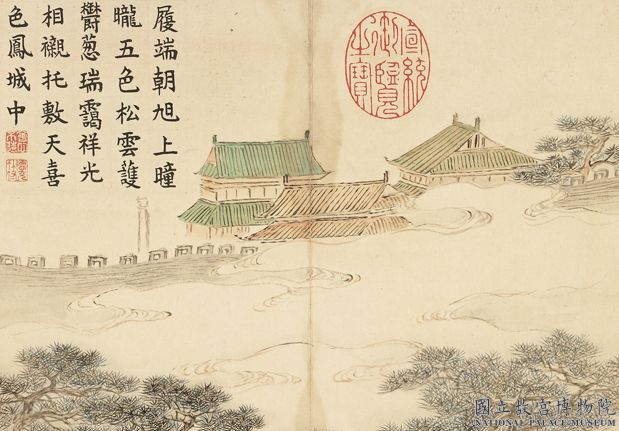 履端朝旭上曈
曨五色松雲護
鬱葱瑞靄祥光
相襯托敷天喜
色鳳城中
宣統
御覽
之寶
國立故宮博物院
NATIONAL PALACE MUSEUM